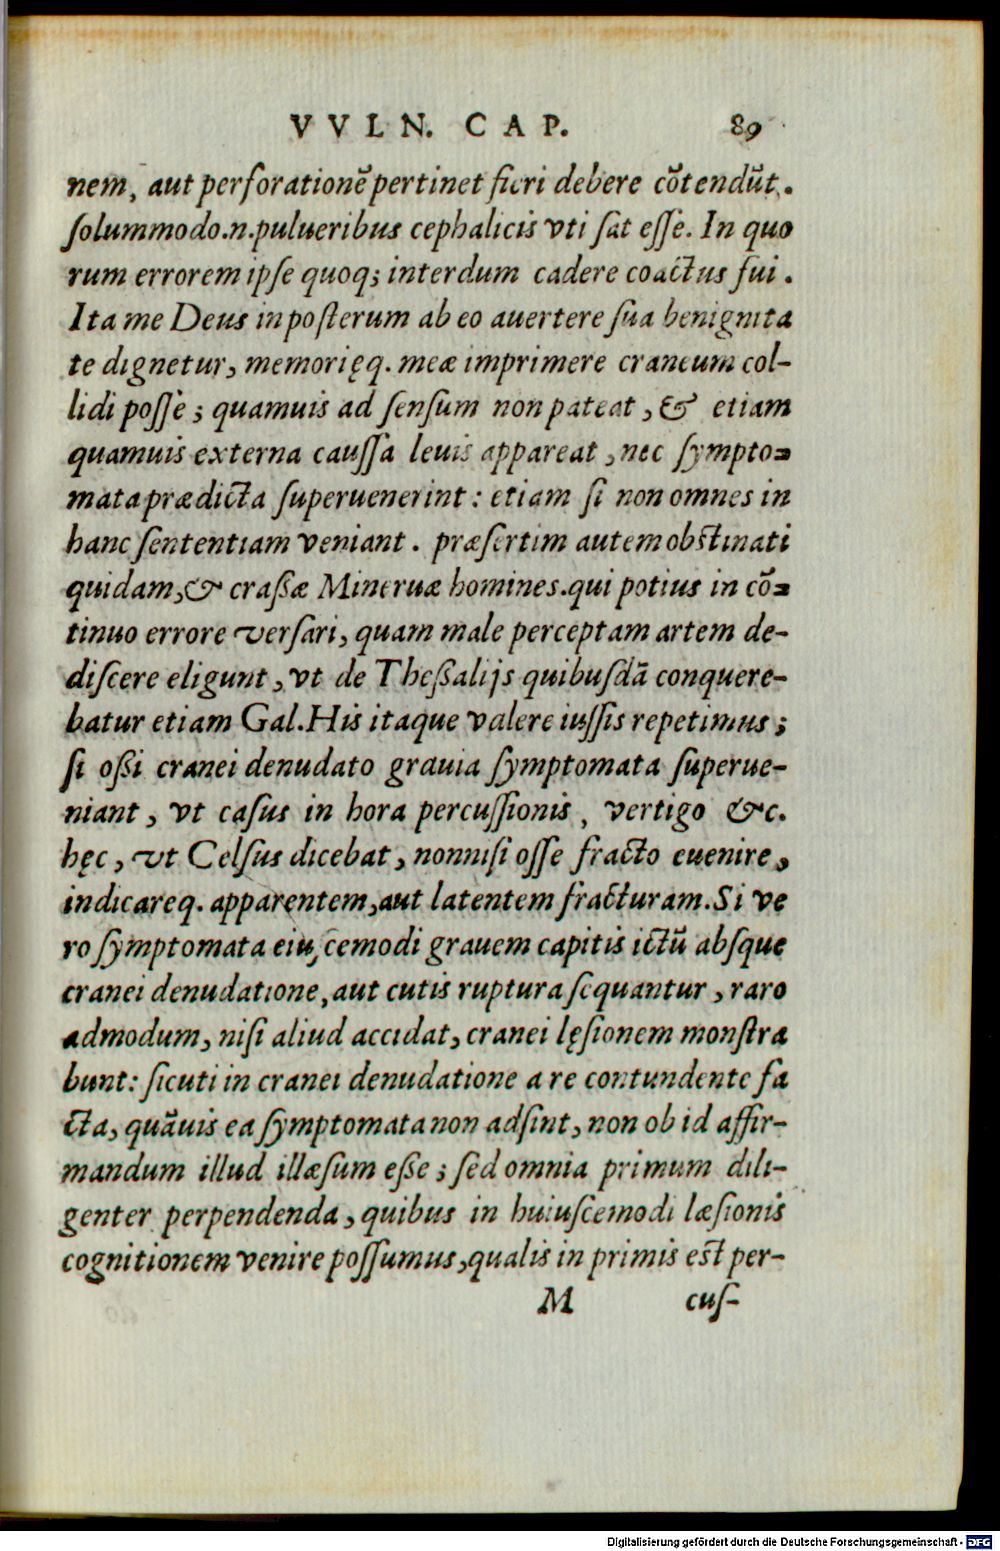 VVLN. CAP. 89
nem, aut perforationẽ pertinet fieri debere cõtendũt.
ſolummodo.n.pulueribus cephalicis vti ſat eſſe. In quo
rum errorem ipſe quoq; interdum cadere coactus fui.
Ita me Deus in poſterum ab eo auertere ſua benignita
te dignetur, memorięq. meæ imprimere craneum col-
lidi poſſe; quamuis ad ſenſum non pateat, & etiam
quamuis externa cauſſa leuis appareat, nec ſympto-
mata prædicta ſuperuenerint: etiam ſi non omnes in
hanc ſententiam veniant. præſertim autem obſtinati
quidam,& craßæ Mineruæ homines.qui potius in cõ-
tinuo errore verſari, quam male perceptam artem de-
diſcere eligunt, vt de Theßalijs quibuſdã conquere-
batur etiam Gal.His itaque valere iuſſis repetimus;
ſi oßi cranei denudato grauia ſymptomata ſuperue-
niant, vt caſus in hora percuſſionis, vertigo &c.
hęc, vt Celſus dicebat, nonniſi oſſe fracto euenire,
indicareq. apparentem,aut latentem fracturam.Si ve
ro ſymptomata eiuſcemodi grauem capitis ictũ abſque
cranei denudatione, aut cutis ruptura ſequantur, raro
admodum, niſi aliud accidat, cranei lęſionem monſtra
bunt: ſicuti in cranei denudatione a re contundente fa
cta, quãuis ea ſymptomata non adſint, non ob id affir-
mandum illud illæſum eße; ſed omnia primum dili-
genter perpendenda, quibus in huiuſcemodi læſionis
cognitionem venire poſſumus,qualis in primis eſt per-
M cuſ-
Digitalisierung gefördert durch die Deutsche Forschungsgemeinschaft - DFG